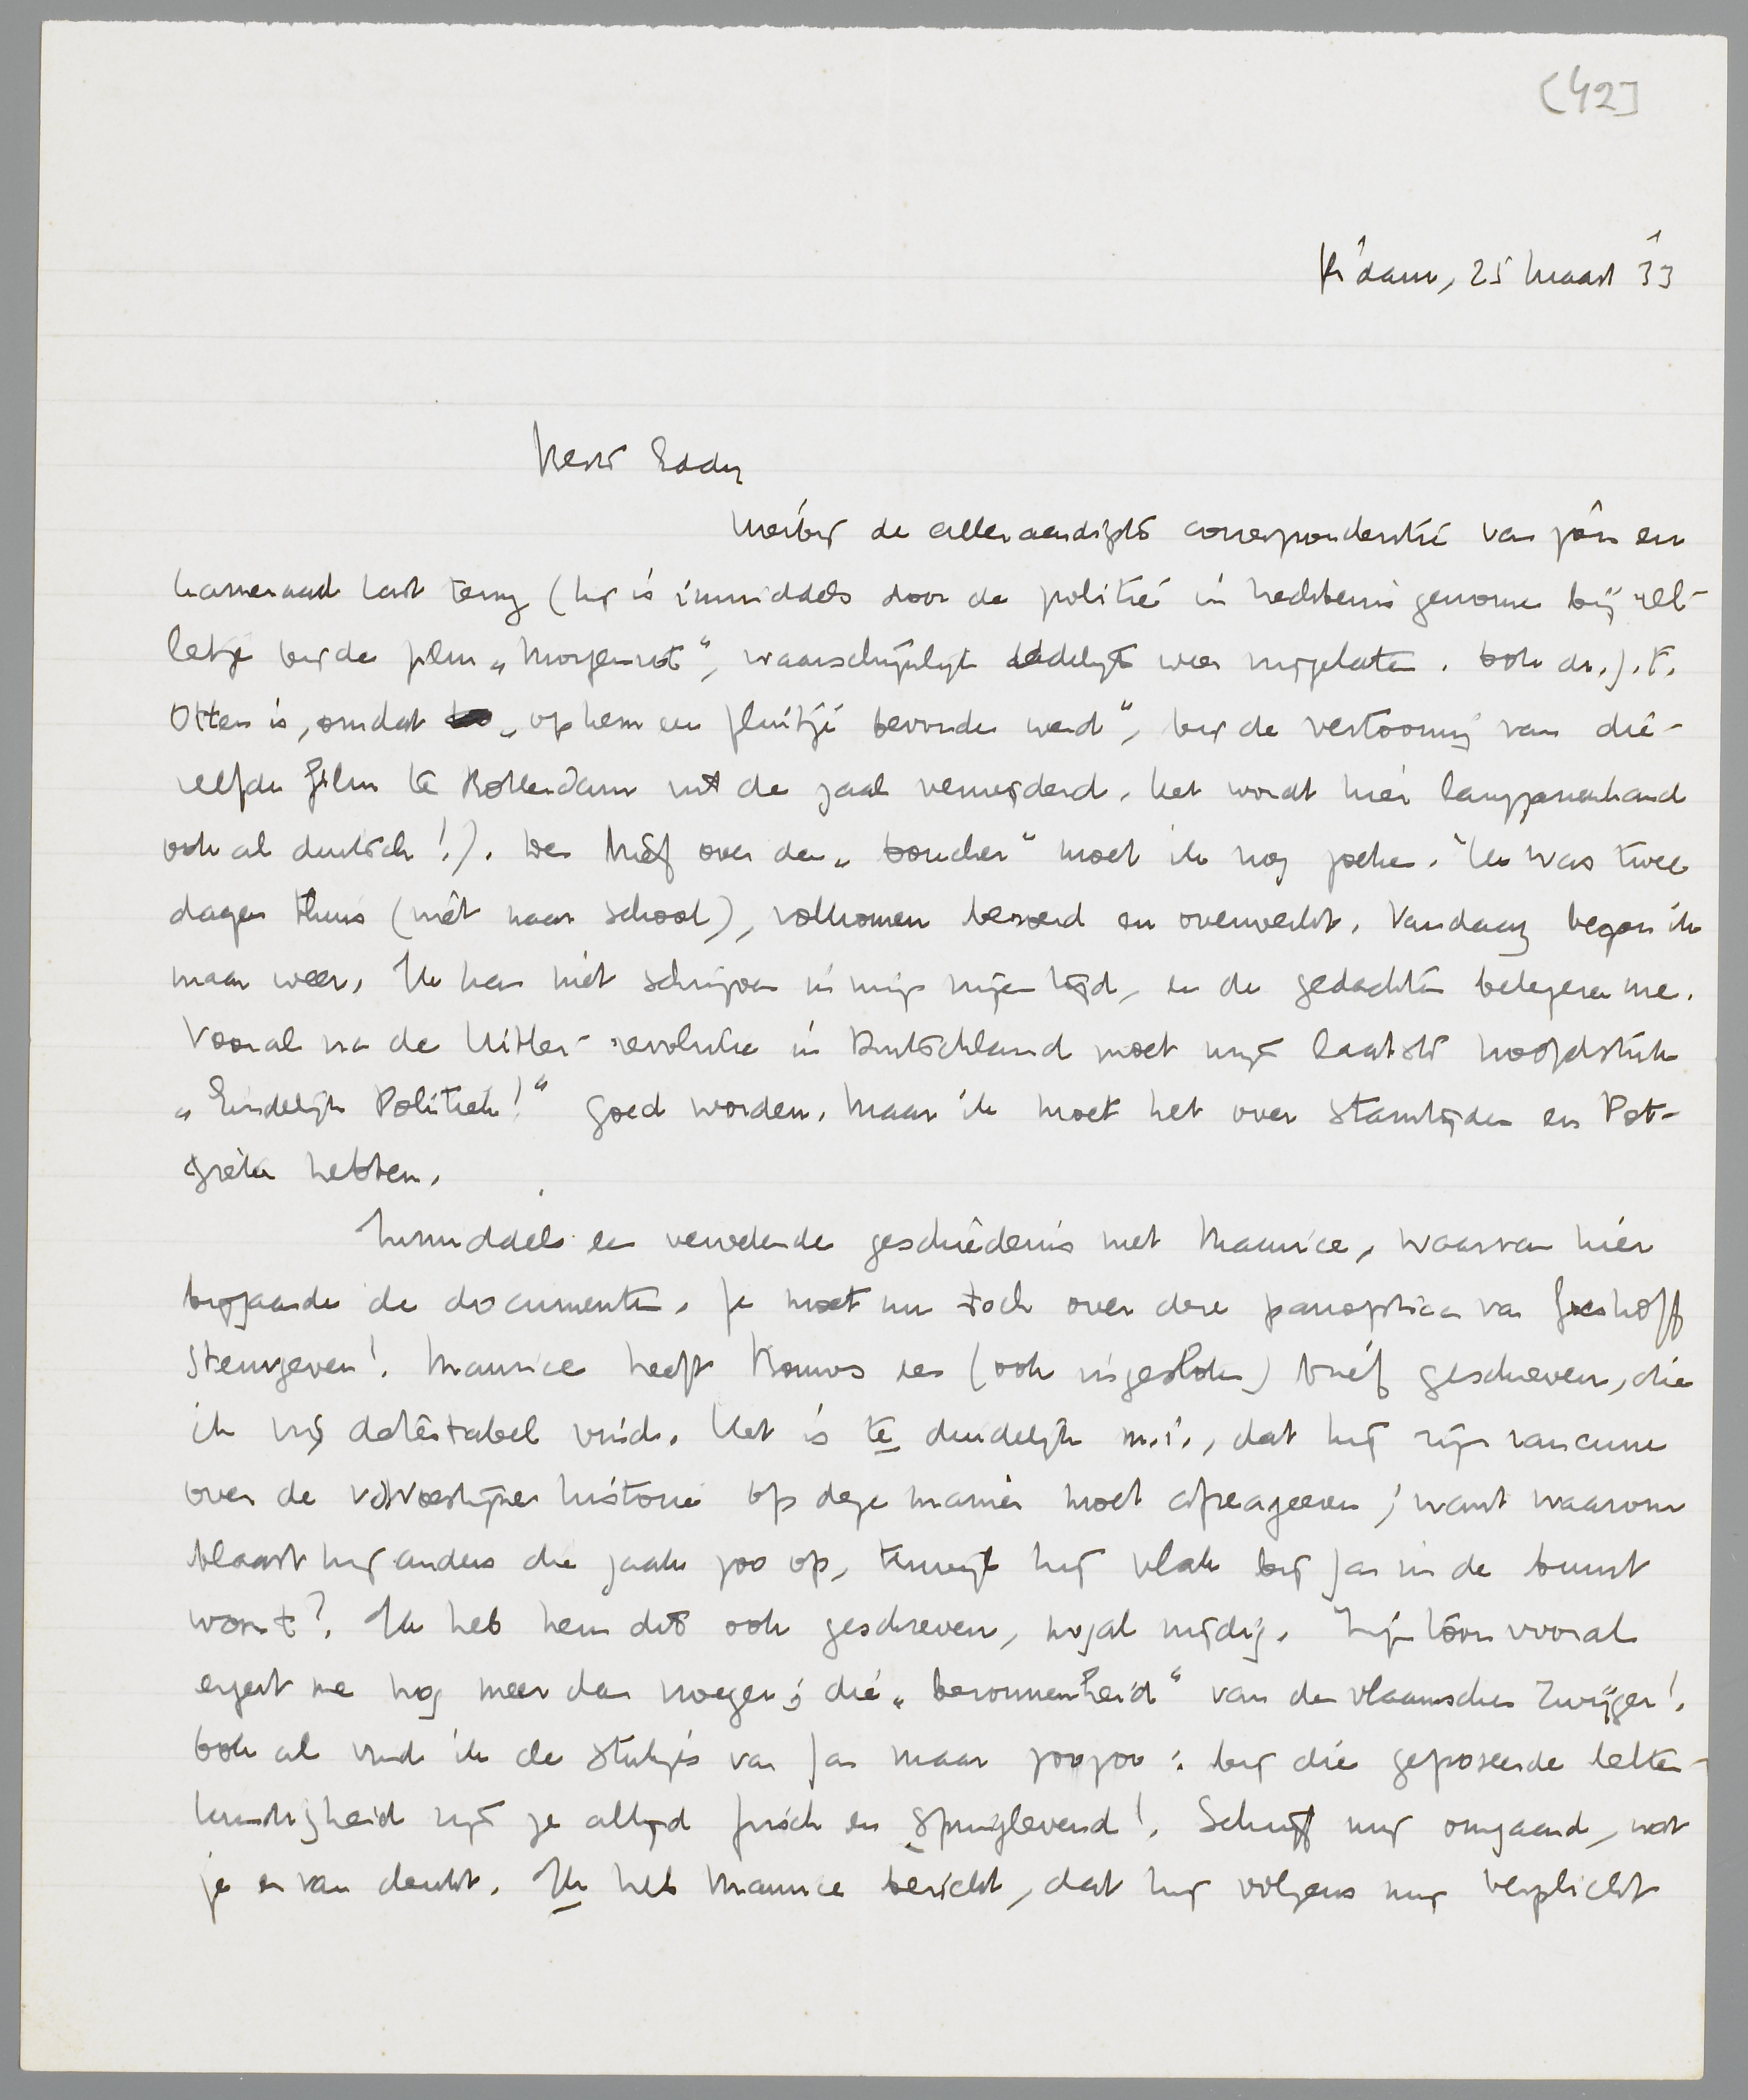 [42]
R'dam, 25 Maart '33
Beste Eddy
Hierbij de alleraardigste correspondentie van jou en
kameraad Last terug (hij is inmiddels door de politie in hechtenis genomen bij rel-
letje bij de film „Morgenrot", waarschijnlijk dadelijk weer vrijgelaten. Ook dr. J.F.
Otten is, omdat „op hem een fluitje bevonden werd", bij de vertooning van die-
zelfde film te Rotterdam uit de zaal verwijderd. Het wordt hier langzamerhand
ook al duitsch!). Den brief over den „boucher" moet ik nog zoeken. Ik was twee
dagen thuis (niet naar school), volkomen beroerd en overwerkt. Vandaag begon ik
maar weer. Ik kan niet schrijven in mijn vrijen tijd, en de gedachten belegeren me.
Vooral na de Hitler-revolutie in Duitschland moet mijn laatste hoofdstuk
„Eindelijk Politiek!" goed worden. Maar ik moet het over stamtijden en Pot-
gieter hebben.
Inmiddels een vervelende geschiedenis met Maurice, waarvan hier
bijgaande de documenten. Je moet nu toch over deze panopticon van Greshoff
stemgeven! Maurice heeft Bouws een (ook ingesloten) brief geschreven, die
ik vrij détestabel vind. Het is te duidelijk m.i., dat hij zijn rancune
over de v.d. Woestijne historie op deze manier moet afreageeren; want waarom
blaast hij anders die zaak zoo op, terwijl hij vlak bij Jan in de buurt
woont? Ik heb hem dit ook geschreven, nogal nijdig. Zijn toon vooral
ergert me nog meer dan vroeger; die „bezonnenheid" van den vlaamschen Zwijger!
Ook al vind ik de stukjes van Jan maar zoozoo: bij die geposeerde letter-
kundigheid zijn ze altijd frisch en springlevend! Schrijf mij omgaand, wat
je er van denkt. Ik heb Maurice bericht, dat hij volgens mij verplicht